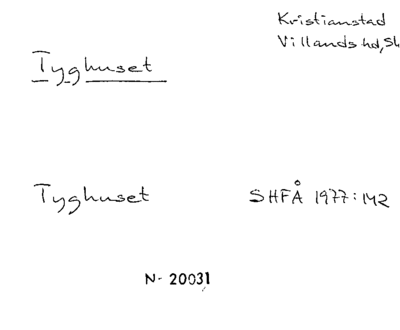 Kristianstad
Villands hd, Sk
Tyghuset
Tyghuset SHFÅ 1977:142
N- 20031